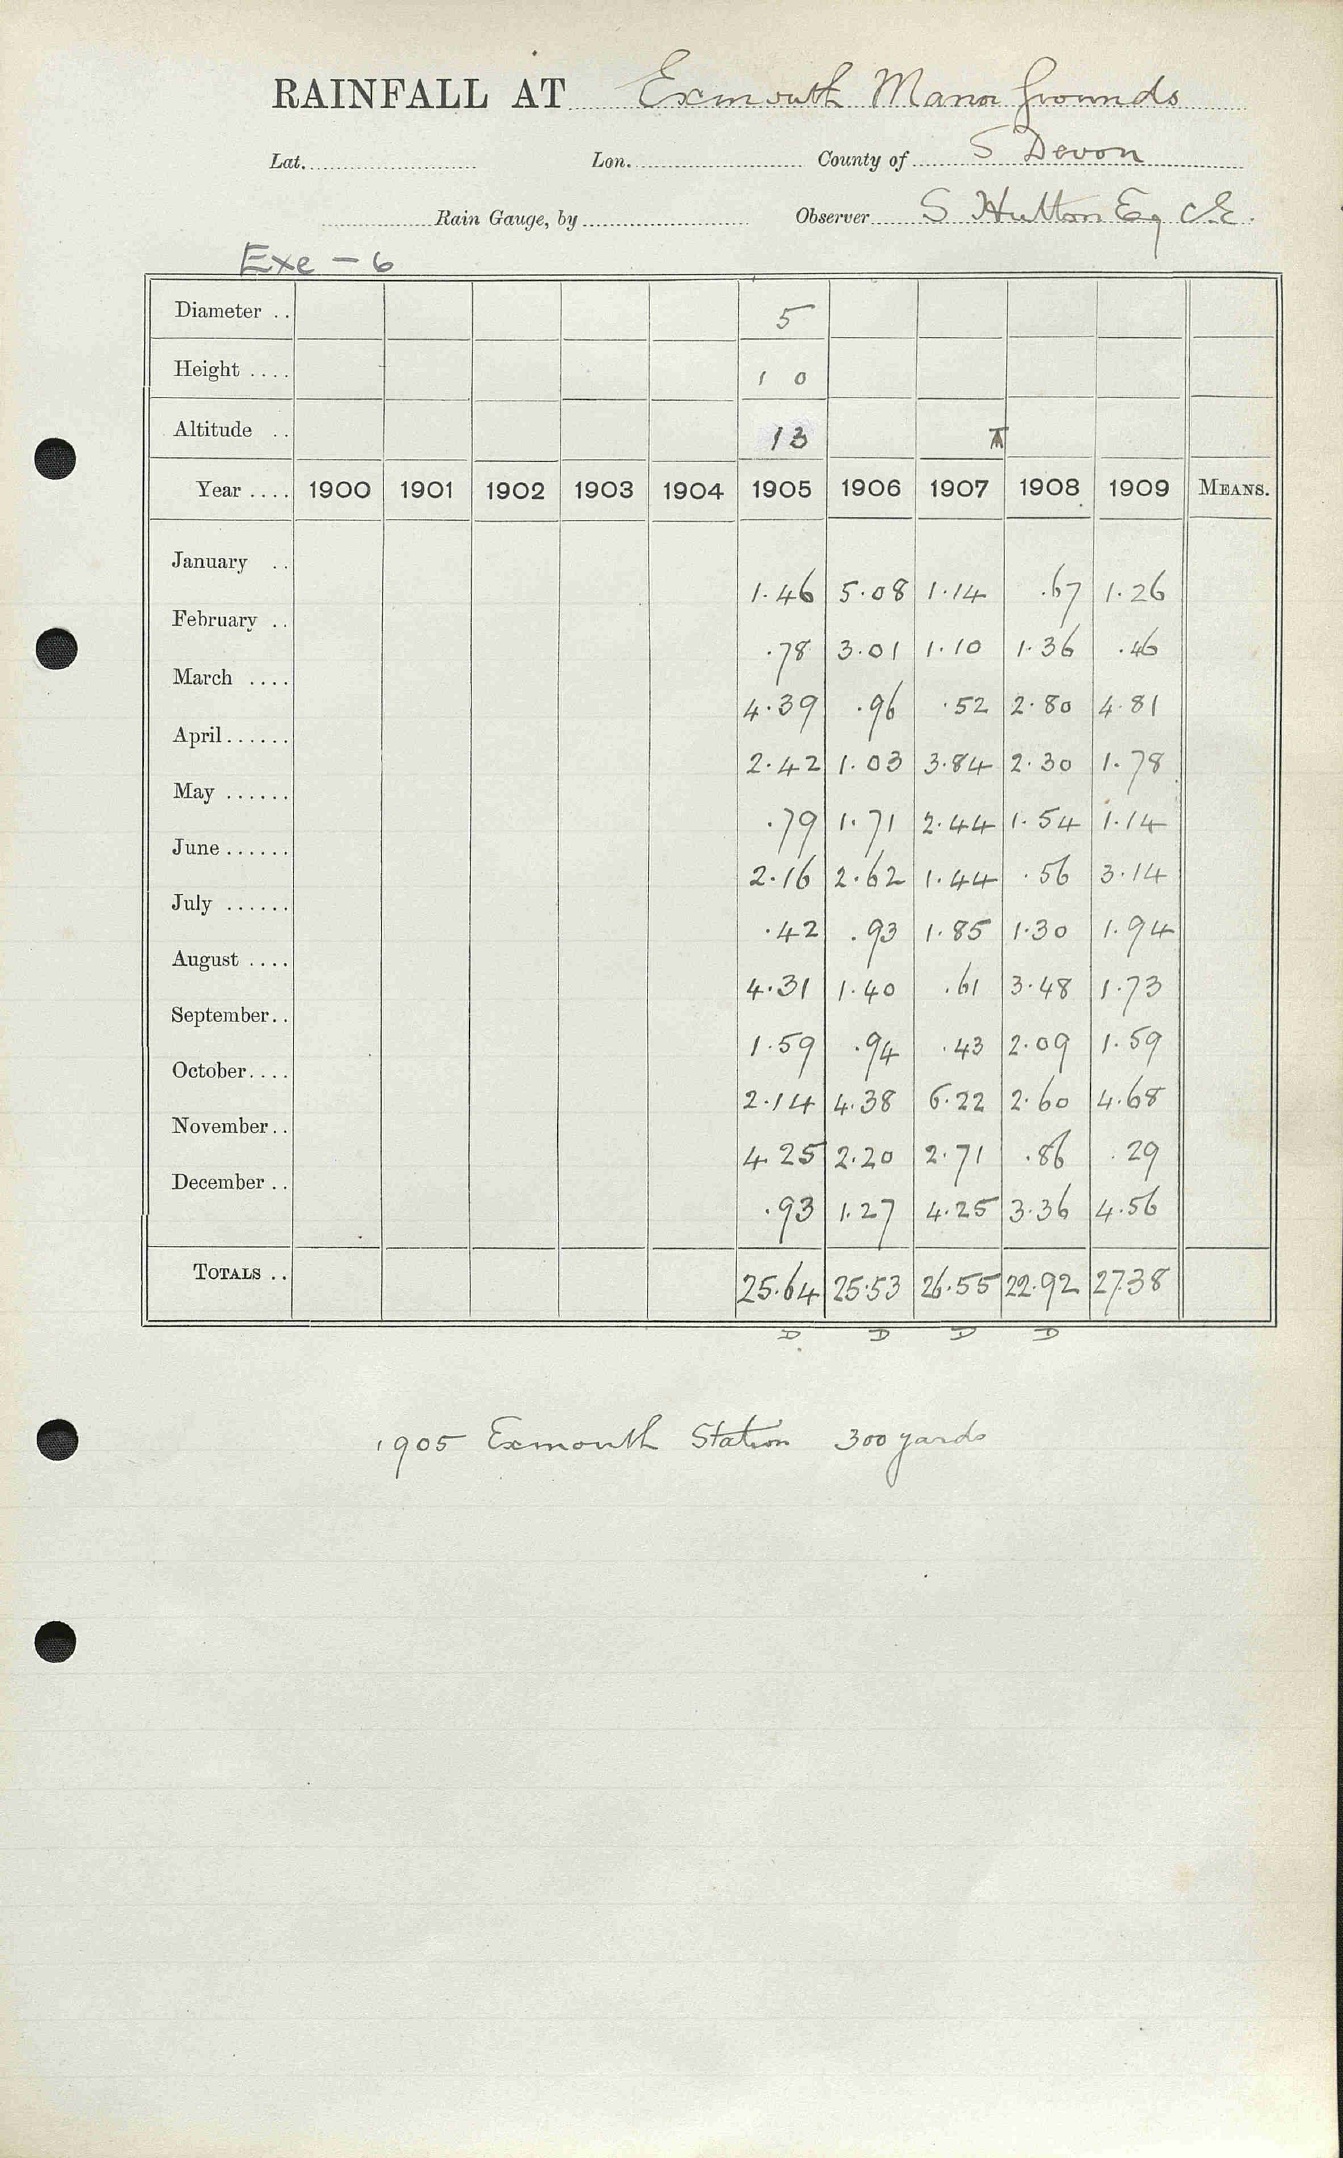 RAINFALL AT Exmouth Manor Grounds
Lat. Lon. County of S Devon
Rain Gauge, by Observer S Hutton Esq C.E.
Exe - 6
Diameter .. 5
Height .... 1 0
Altitude .. 13
Year .... 1900 1901 1902 1903 1904 1905 1906 1907 1908 1909 MEANS.
January .. 1.46 5.08 1.14 .67 1.26
February .. .78 3.01 1.10 1.36 .46
March .... 4.39 .96 .52 2.80 4.81
April...... 2.42 1.03 3.84 2.30 1.78
May ...... .79 1.71 2.44 1.54 1.14
June ...... 2.16 2.62 1.44 .56 3.14
July ...... .42 .93 1.85 1.30 1.94
August .... 4.31 1.40 .61 3.48 1.73
September.. 1.59 .94 .43 2.09 1.59
October.... 2.14 4.38 6.22 2.60 4.68
November.. 4.25 2.20 2.71 .86 .29
December .. .93 1.27 4.25 3.36 4.56
TOTALS .. 25.64 25.53 26.55 22.92 27.38
D D D D
1905 Exmouth Station 300 yards